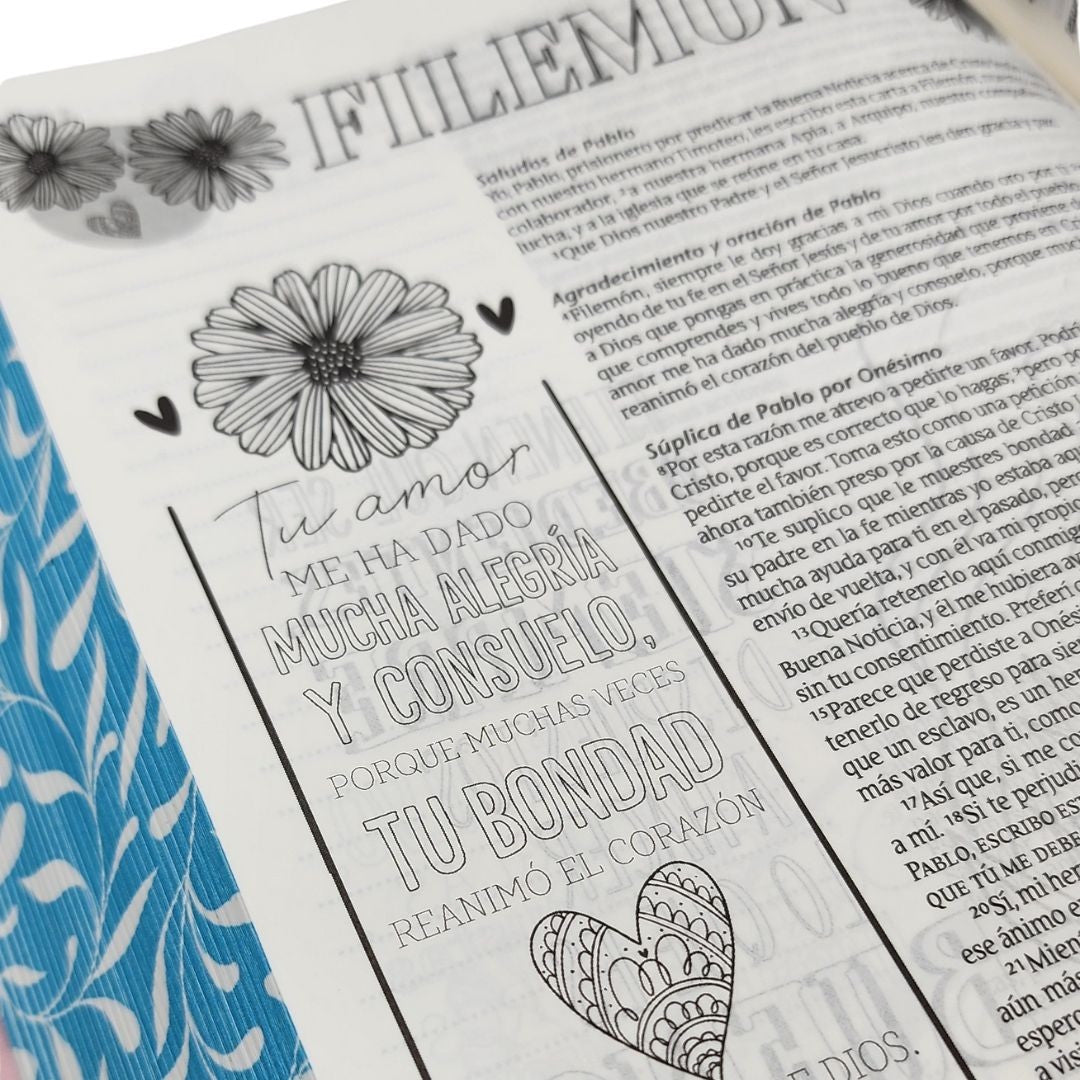 FILEMÓN
Tu amor
ME HA DADO
MUCHA ALEGRÍA
Y CONSUELO,
PORQUE MUCHAS VECES
TU BONDAD
REANIMÓ EL CORAZÓN
E DIOS.
Saludos de Pablo
Yo, Pablo, prisionero por predicar la Buena Noticia acerca de Cristo
con nuestro hermano Timoteo, les escribo esta carta a Filemón, nuestro
colaborador, ²a nuestra hermana Apia, a Arquipo, nuestro
lucha, y a la iglesia que se reúne en tu casa.
³Que Dios nuestro Padre y el Señor Jesucristo les den gracia y paz.
Agradecimiento y oración de Pablo
⁴Filemón, siempre le doy gracias a mi Dios cuando oro por ti
oyendo de tu fe en el Señor Jesús y de tu amor por todo el pueblo
a Dios que pongas en práctica la generosidad que proviene
que comprendes y vives todo lo bueno que tenemos en
amor me ha dado mucha alegría y consuelo, porque
reanimó el corazón del pueblo de Dios.
Súplica de Pablo por Onésimo
⁸Por esta razón me atrevo a pedirte un favor. Podrí
Cristo, porque es correcto que lo hagas; ⁹pero p
pedirte el favor. Toma esto como una petición
ahora también preso por la causa de Cristo
¹⁰Te suplico que le muestres bondad
su padre en la fe mientras yo estaba aqu
mucha ayuda para ti en el pasado, per
envío de vuelta, y con él va mi propio
¹³Quería retenerlo aquí conmig
Buena Noticia, y él me hubiera ay
sin tu consentimiento. Preferí
¹⁵Parece que perdiste a Onés
tenerlo de regreso para sie
que un esclavo, es un her
más valor para ti, como
¹⁷Así que, si me co
a mí. ¹⁸Si te perjudi
PABLO, ESCRIBO EST
QUE TÚ ME DEBE
²⁰Sí, mi her
ese ánimo e
²¹Mien
aún más
espero
a visi